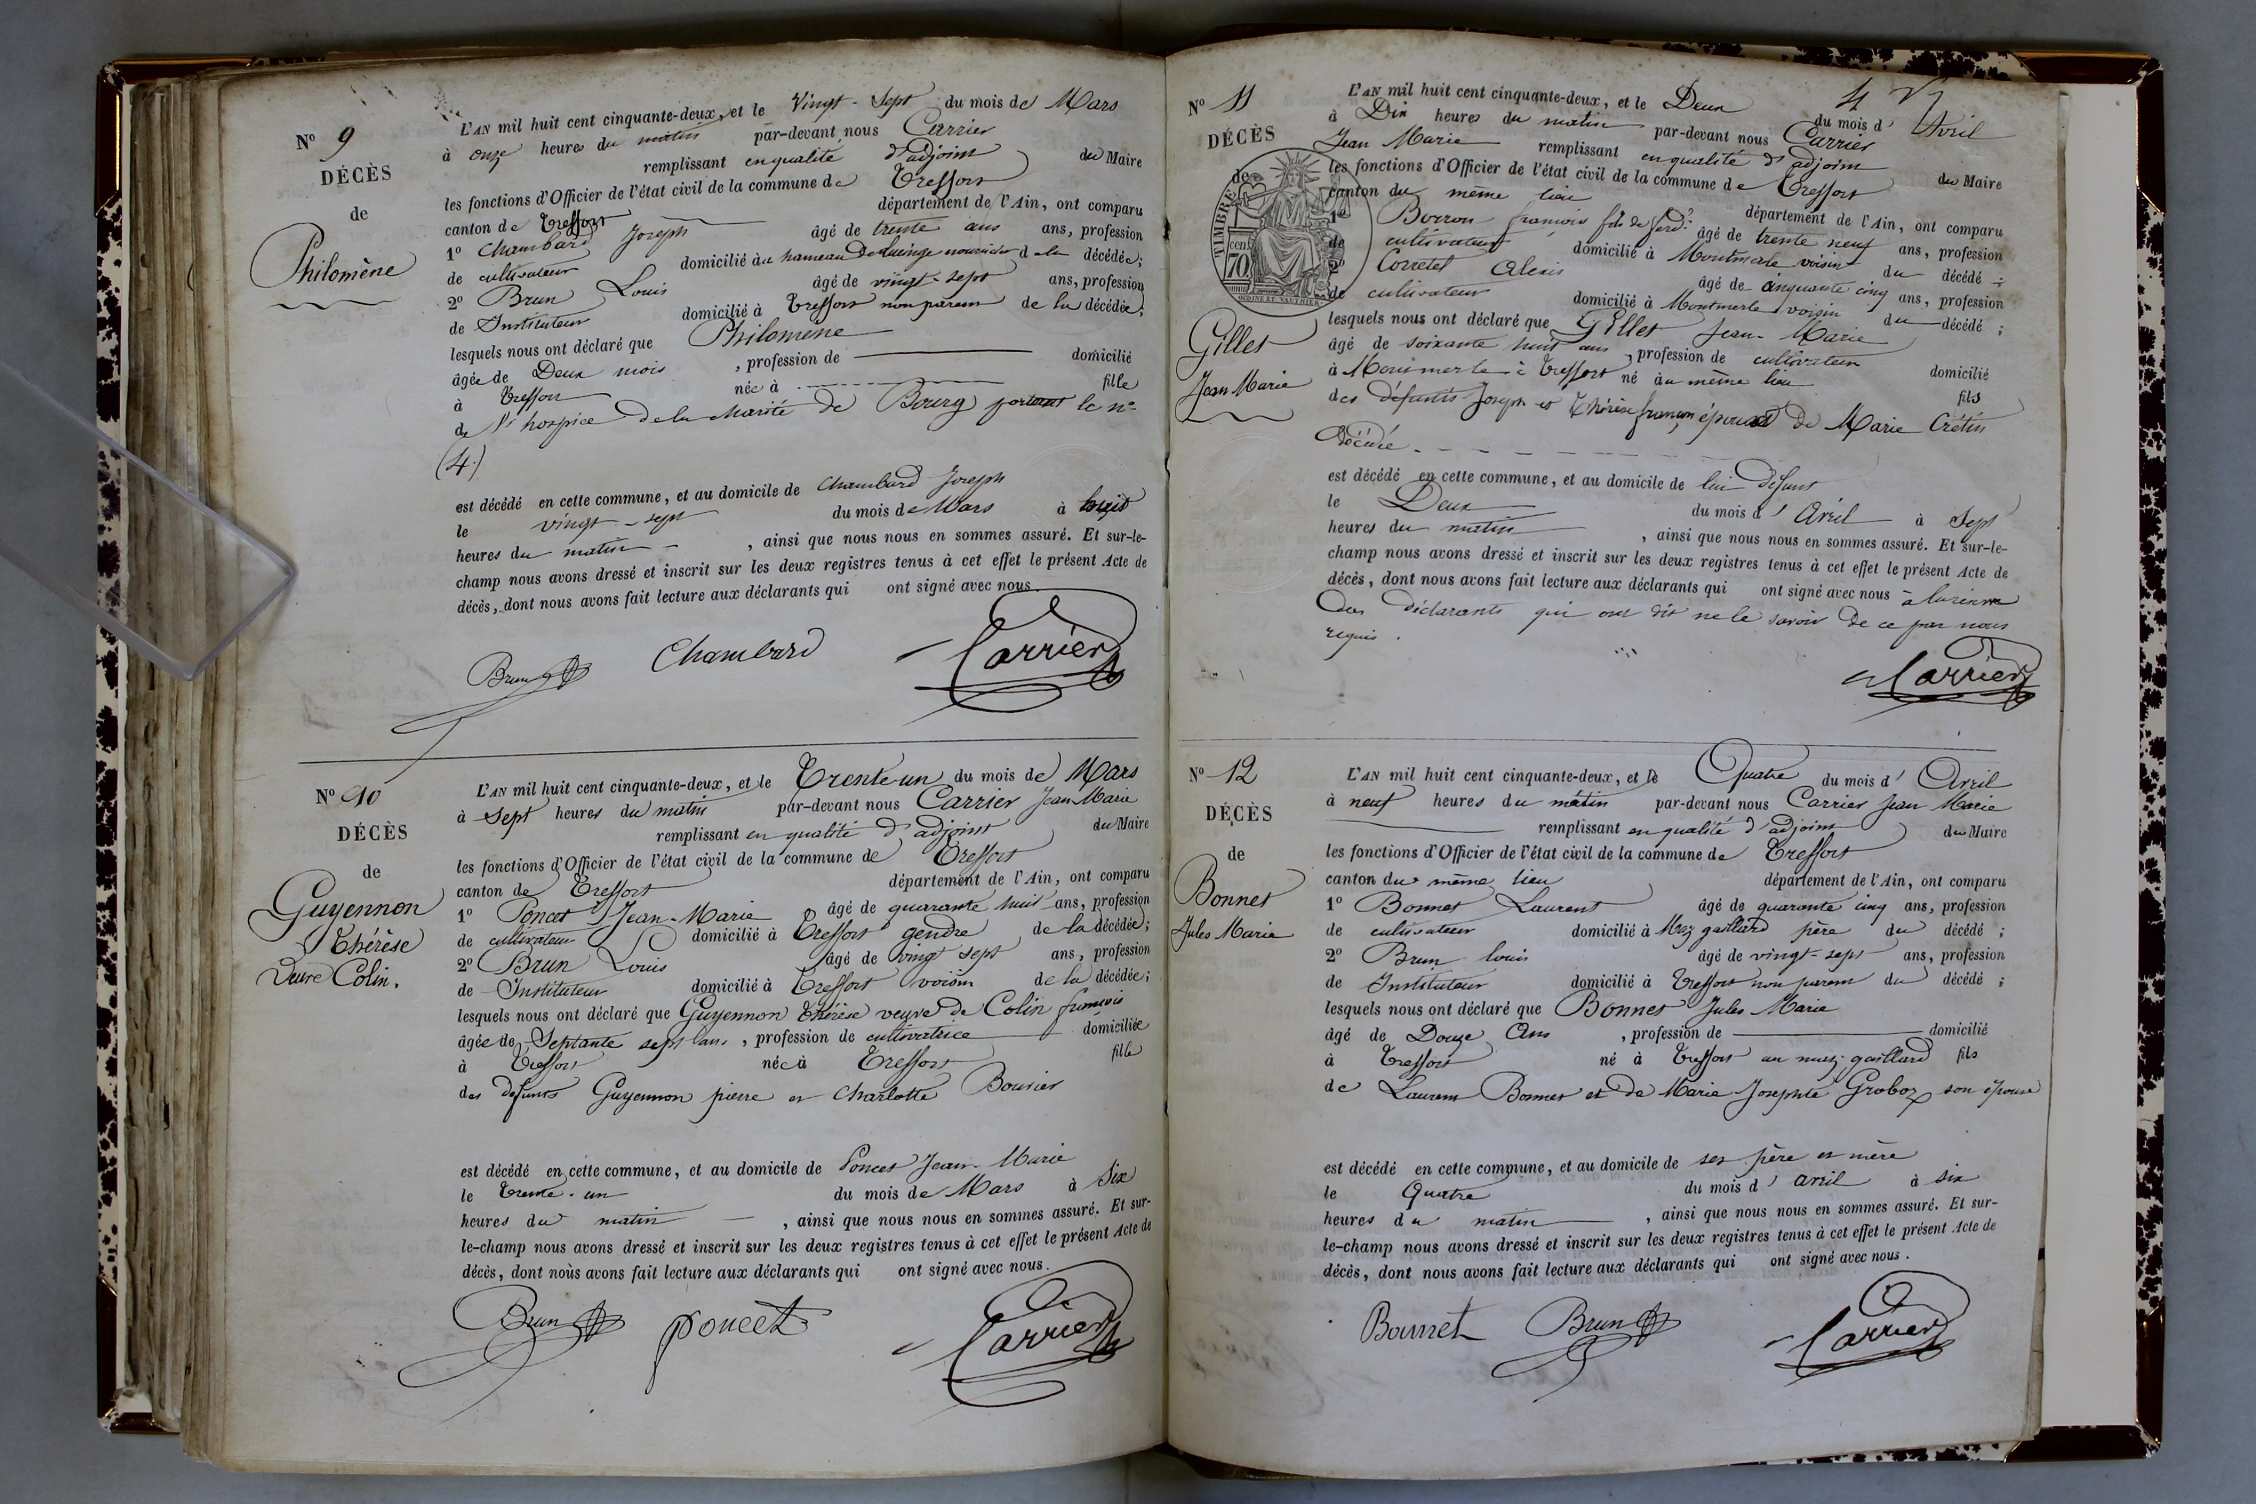 N° 9
DÉCÈS
de
Philomène
L'AN mil huit cent cinquante-deux, et le Vingt-Sept du mois de Mars
à onze heures du matin par-devant nous Carrier
remplissant en qualité d'adjoint du Maire
les fonctions d'Officier de l'état civil de la commune de Treffort
canton de Treffort département de l'Ain, ont comparu
1° Chambard Joseph âgé de trente ans ans, profession
de cultivateur domicilié au hameau de de la décédée;
2° Brun Louis âgé de vingt-sept ans, profession
de Instituteur domicilié à Treffort non parent de la décédée;
lesquels nous ont déclaré que Philomène
âgée de Deux mois, profession de domicilié
à Treffort née à fille
de l'hospice de la charité de Bourg portant le n°
(4.)
est décédé en cette commune, et au domicile de Chambard Joseph
le vingt-sept du mois de Mars à huit
heures du matin, ainsi que nous nous en sommes assuré. Et sur-le-
champ nous avons dressé et inscrit sur les deux registres tenus à cet effet le présent Acte de
décès, dont nous avons fait lecture aux déclarants qui ont signé avec nous
Brun Chambard Carrier
N° 10
DÉCÈS
de
Guyennon
Thérèse
Veuve Colin.
L'AN mil huit cent cinquante-deux, et le Trente-un du mois de Mars
à Sept heures du matin par-devant nous Carrier Jean Marie
remplissant en qualité d'adjoint du Maire
les fonctions d'Officier de l'état civil de la commune de Treffort
canton de Treffort département de l'Ain, ont comparu
1° Poncet Jean-Marie âgé de quarante huit ans, profession
de cultivateur domicilié à Treffort gendre de la décédée;
2° Brun Louis âgé de vingt sept ans, profession
de Instituteur domicilié à Treffort voisin de la décédée;
lesquels nous ont déclaré que Guyennon Thérèse veuve de Colin françois
âgée de Septante sept ans, profession de cultivatrice domiciliée
à Treffort née à Treffort fille
des defunts Guyennon pierre et Charlotte Bouvier
est décédé en cette commune, et au domicile de Poncet Jean-Marie
le trente-un du mois de Mars à Six
heures du matin, ainsi que nous nous en sommes assuré. Et sur-
le-champ nous avons dressé et inscrit sur les deux registres tenus à cet effet le présent Acte de
décès, dont nous avons fait lecture aux déclarants qui ont signé avec nous.
Brun Poncet Carrier
N° 11
DÉCÈS
de
TIMBRE
70 cent
Gillet
Jean Marie
L'AN mil huit cent cinquante-deux, et le Deux du mois d'Avril
à Dix heures du matin par-devant nous Carrier
Jean Marie remplissant en qualité d'adjoint du Maire
les fonctions d'Officier de l'état civil de la commune de Treffort
canton du même lieu département de l'Ain, ont comparu
1° Borron françois fils de ferd. âgé de trente neuf ans, profession
de cultivateur domicilié à Montmerle voisin du décédé;
2° Corretel Alexis âgé de cinquante cinq ans, profession
de cultivateur domicilié à Montmerle voisin du décédé;
lesquels nous ont déclaré que Gillet Jean-Marie
âgé de soixante huit ans, profession de cultivateur domicilié
à Montmerle à Treffort né au même lieu fils
des défunts Joseph et Thérèse françon époux de Marie Crétin
décédé
est décédé en cette commune, et au domicile de lui défunt
le Deux du mois d'Avril à Sept
heures du matin, ainsi que nous nous en sommes assuré. Et sur-le-
champ nous avons dressé et inscrit sur les deux registres tenus à cet effet le présent Acte de
décès, dont nous avons fait lecture aux déclarants qui ont signé avec nous
des déclarants qui ont dit ne le savoir de ce par nous
requis.
Carrier
N° 12
DÉCÈS
de
Bonnet
Jules Marie
L'AN mil huit cent cinquante-deux, et le Quatre du mois d'Avril
à neuf heures du matin par-devant nous Carrier Jean Marie
remplissant en qualité d'adjoint du Maire
les fonctions d'Officier de l'état civil de la commune de Treffort
canton du même lieu département de l'Ain, ont comparu
1° Bonnet Laurent âgé de quarante cinq ans, profession
de cultivateur domicilié à Muz gaillard père du décédé;
2° Brun louis âgé de vingt-sept ans, profession
de Instituteur domicilié à Treffort non parent du décédé;
lesquels nous ont déclaré que Bonnet Jules Marie
âgé de Douze Ans, profession de domicilié
à Treffort né à Treffort au muz-gaillard fils
de Laurent Bonnet et de Marie-Josephte Groboz son épouse
est décédé en cette commune, et au domicile de ses père et mère
le Quatre du mois d'avril à six
heures du matin, ainsi que nous nous en sommes assuré. Et sur-
le-champ nous avons dressé et inscrit sur les deux registres tenus à cet effet le présent Acte de
décès, dont nous avons fait lecture aux déclarants qui ont signé avec nous.
Bonnet Brun Carrier